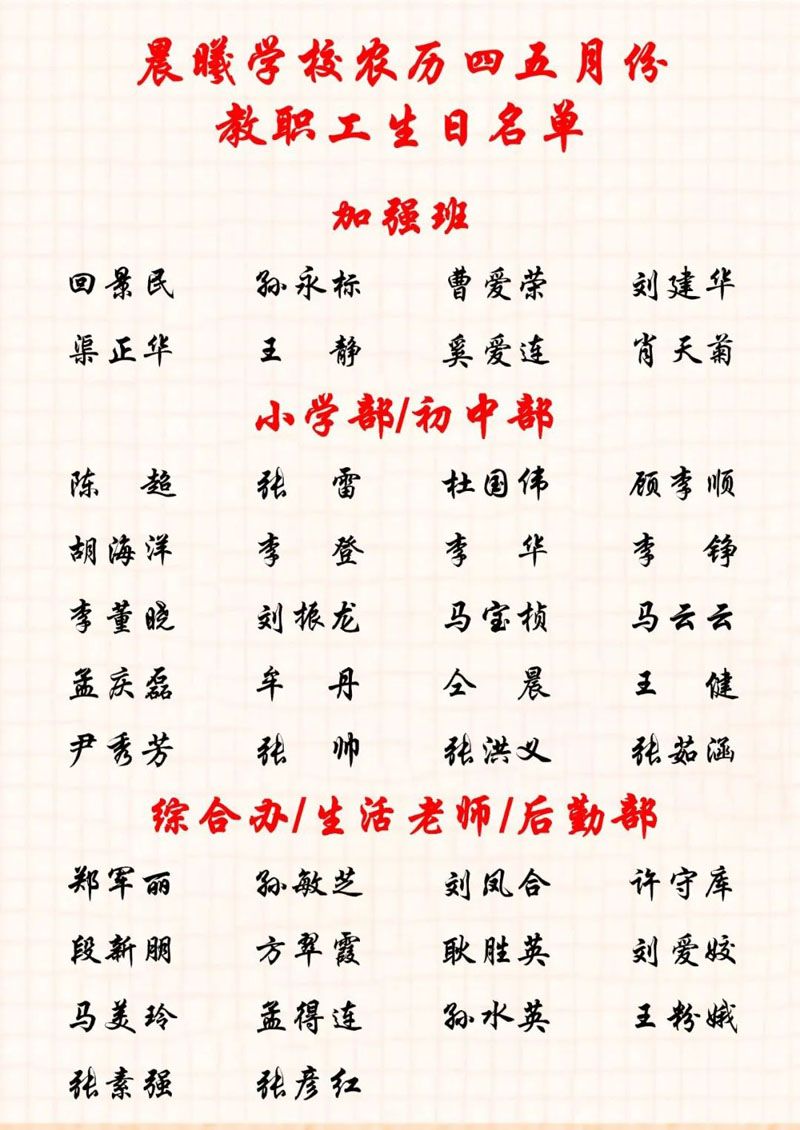 晨曦学校农历四五月份
教职工生日名单
加强班
回景民 孙永标 曹爱荣 刘建华
渠正华 王 静 奚爱连 肖天菊
小学部/初中部
陈 超 张 雷 杜国伟 顾李顺
胡海洋 李 登 李 华 李 铮
李董晓 刘振龙 马宝桢 马云云
孟庆磊 牟 丹 仝 晨 王 健
尹秀芳 张 帅 张洪义 张茹涵
综合办/生活老师/后勤部
郑军丽 孙敏芝 刘凤合 许守库
段新朋 方翠霞 耿胜英 刘爱姣
马美玲 孟得连 孙水英 王粉娥
张素强 张彦红